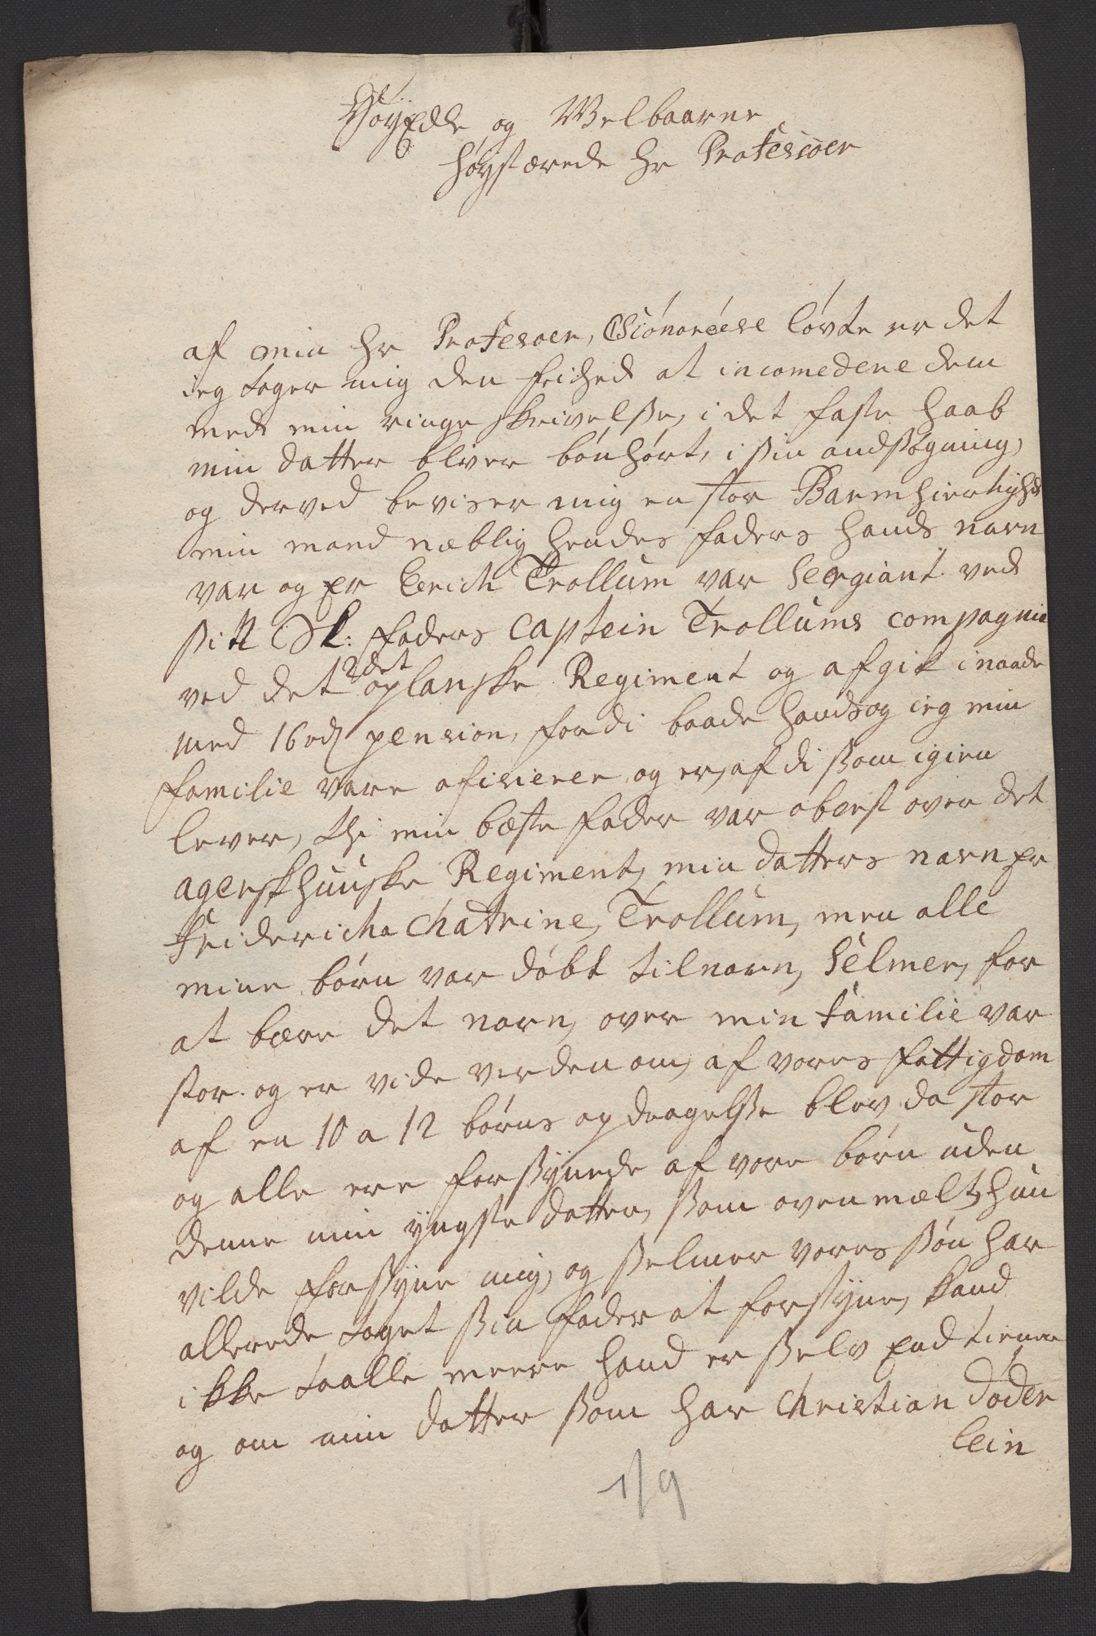 HøyEdle og Welbaarne
høystærede hr Professoer
af min hr Professoer, Gionoröese løvte er det
ieg tager mig den frihed at incomedere dem
med min ringe skrivelsse, i det faste haab
min datter bliver bönhørt, i sin andsøgning,
og derved beviser mig en stor Barmhiertighed
min mand næblig hendes faders hands navn
var og er Erich Trollum var Sergiant ved
sitt Sl: faders Captein Trollums compagnie
ved det 2det oplanske Regiment og afgik i naade
med 16 rd pension, fordi baade hands og ieg min
familie vare oficierer, og er, af di som igien
lever, thi min bæste fader var oberst over det
agerskhuuske Regiment, min datters navn er
Fridericha Chatrine, Trollum, men alle
mine børn var døbt tilnavn, Selmer, for
at bære det navn, over min familie var
stor. og er vide verden om, af vores fattigdom
af en 10 a 12 børns opdragelsse blev da stor
og alle ere forsynede af vore børn uden
denne min yngste datter, som oven mælt, hun
vilde forsyne mig, og selmer vores søn har
allerede taget sin fader at forsyne, kand
ikke taalle meere hand er selv End tienner
og om min datter som har Christian döder
lein
1/9